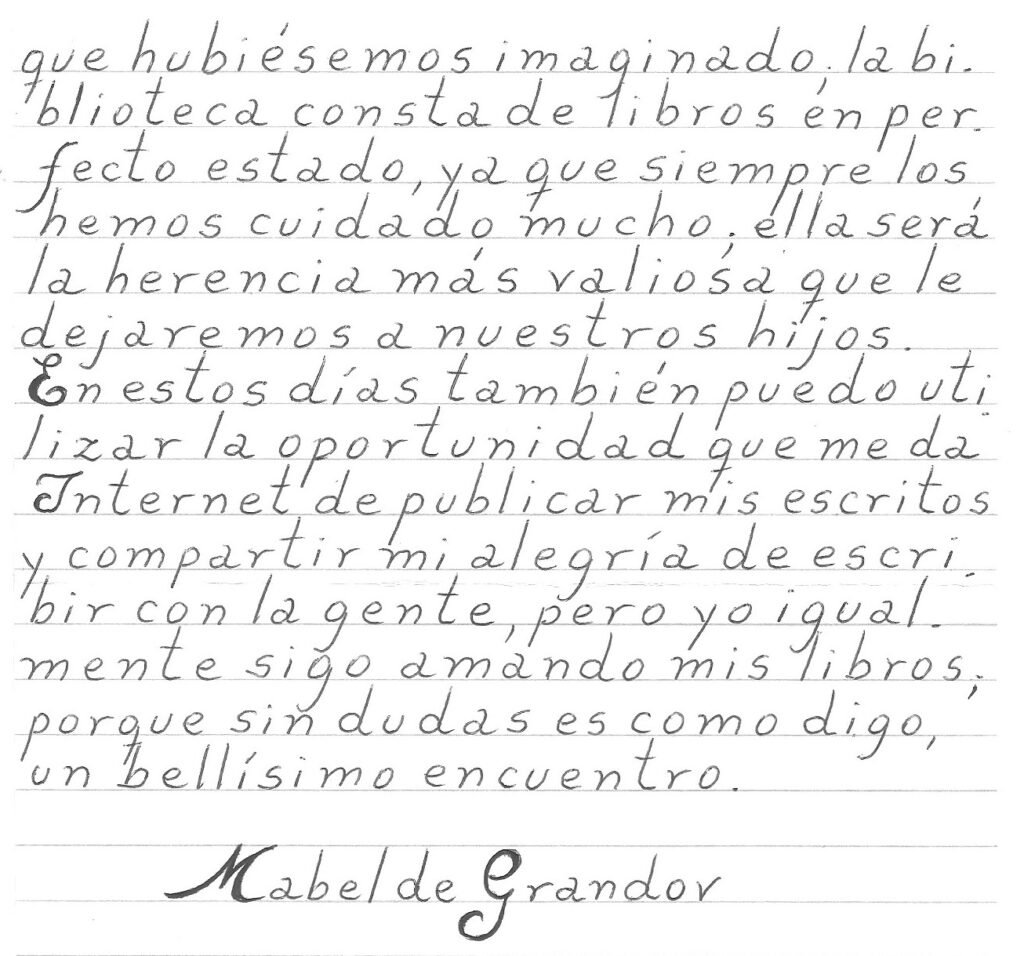 que hubiésemos imaginado; la bi-
blioteca consta de libros en per-
fecto estado, ya que siempre los
hemos cuidado mucho; ella será
la herencia más valiosa que le
dejaremos a nuestros hijos.
En estos días también puedo uti
lizar la oportunidad que me da
Internet de publicar mis escritos
y compartir mi alegría de escri-
bir con la gente, pero yo igual-
mente sigo amando mis libros;
porque sin dudas es como digo,
un bellísimo encuentro.
Mabel de Grandov